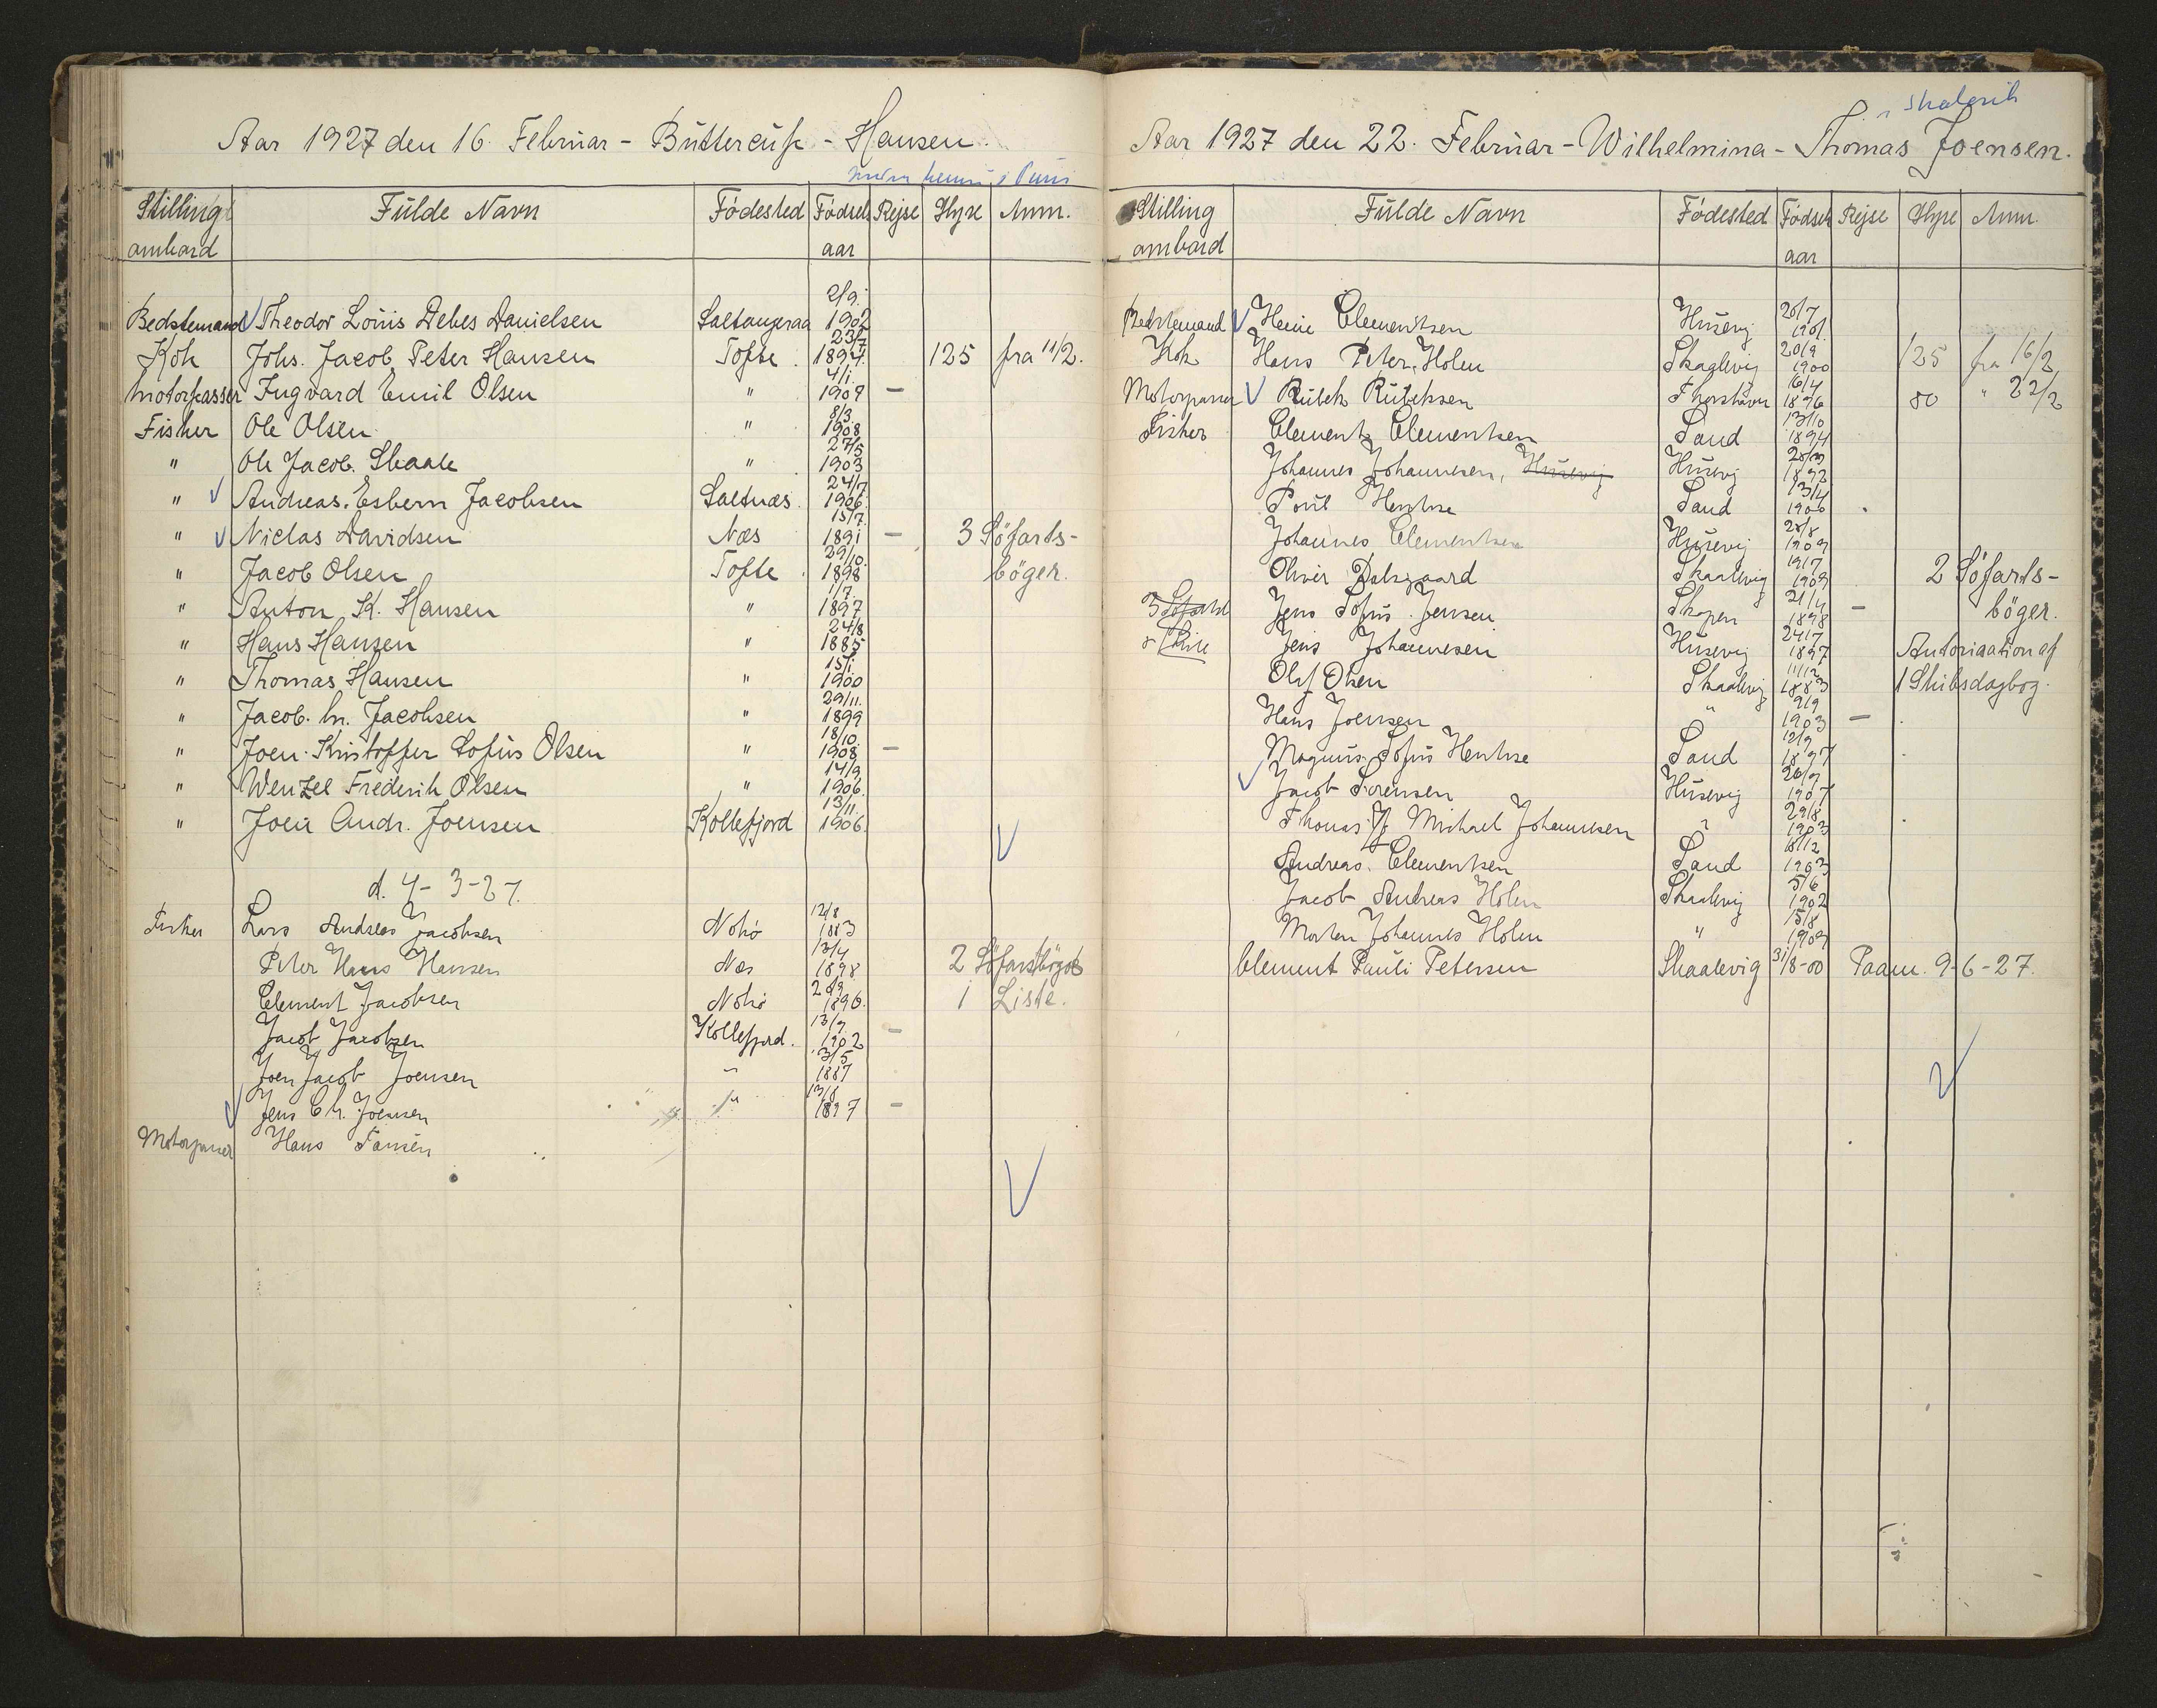 Aar 1927 den 16. Februar - Buttercup - Hansen.
Stilling ambord Fulde Navn Födested Födsels aar Rejse Hyre Anm.
Bedstemand Theodor Louis Debes Danielsen Saltangeraa 2/9. 1902
Kok Johs. Jacob Peter Hansen Tofte 23/7 1894. 125 fra 11/2.
Motorpasser Ingvard Emil Olsen " 4/1. 1909 -
Fisker Ole Olsen " 8/3. 1908
" Ole Jacob. Skaale " 27/5 1903
" Andreas. Esbern Jacobsen Saltnæs. 24/7 1906.
" Niclas Davidsen Næs 15/7. 1891 - 3 Söfarts-
" Jacob Olsen Tofte 29/10. 1898 böger.
" Anton K. Hansen " 1/7. 1897
" Hans Hansen " 24/8 1885
" Thomas Hansen " 15/1 1900
" Jacob. M. Jacobsen " 29/11. 1899
" Joen. Kristoffer Sofus Olsen " 18/10 1908 -
" Wenzel Frederik Olsen " 14/9 1906.
" Joen Andr. Joensen Kollefjord 13/11. 1906.
d. 4-3-27.
Fisker Lars Andreas Jacobsen Nolsö 12/8 1883
Peter Hans Hansen Næs 13/4 1898 2 Söfartsböger
Clement Jacobsen Nolsö 1896. 1 Liste.
Jacob Jacobsen Kollefjord. 13/9. 1902 -
Joen Jacob Joensen " 13/5 1887
Jens Chr. Joensen " 13/8 1897 -
Motorpasser Hans
Skaalevik
Aar 1927 den 22. Februar - Wilhelmina - Thomas Joensen.
Stilling ambord Fulde Navn Födested Födsels aar Rejse Hyre Anm.
Bedstemand Heine Clementsen Husevig 20/7 1901.
Kok Hans Peter Holm Skaalevig 20/9 1900 125 fra 16/2
Motorpasser Rubek Rubeksen Thorshavn 16/4 1896 80 " 22/2
Fisker Clement Clementsen Sand 13/10 1894
Johannes Johannesen, Husevig Husevig 1892
Poul Hentze Sand 13/4 1900
Johannes Clementsen Husevig 28/8 1909
Oliver Dalsgaard Skaalevig 19/7 1909 2 Söfarts-
3 Söfartsb Jens Sofus Jensen Skopen 21/4 1898 - böger.
Jens Johannesen Husevig 24/7 1897 Autorisation af
Olaf Olsen Skaalevig 11/12 1883 1 Skibsdagbog.
Hans Joensen " 9/9 1903 -
Magnus Sofus Hentze Sand 12/9 1897
Jacob Sörensen Husevig 20/9 1907
Thomas Michael Johannesen " 29/8 1903
Andreas. Clementsen Sand 18/12 1903
Jacob Andreas Holm Skaalevig 5/6 1902
Morten Johannes Holm " 15/8 1909
Clement Pauli Petersen Skaalevig 31/8-00 Paam. 9-6-27.